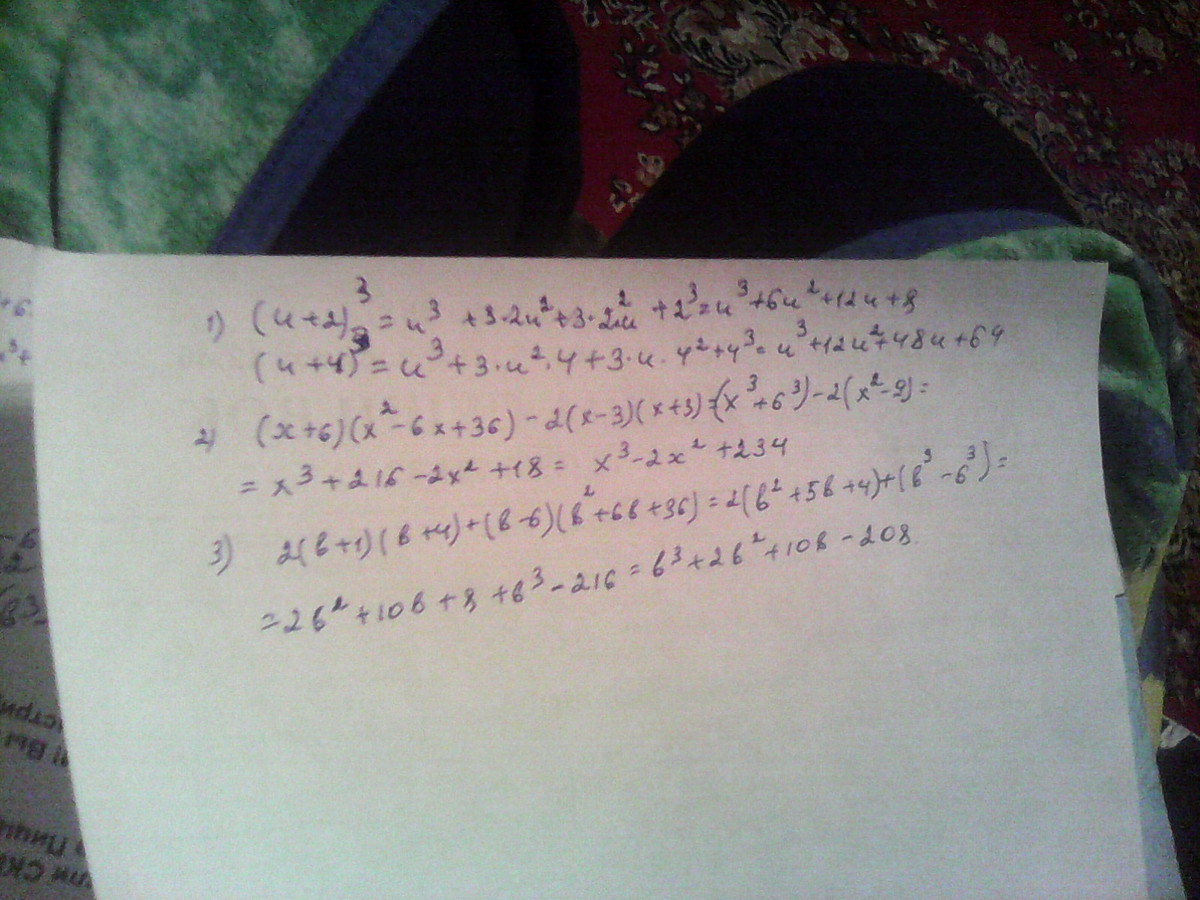 1) (u+2)³ = u³ + 3·2u² + 3·2²u + 2³ = u³+6u²+12u+8
(u+4)³ = u³+3·u²·4+3·u·4²+4³ = u³+12u²+48u+64
2) (x+6)(x²-6x+36)-2(x-3)(x+3)=(x³+6³)-2(x²-9)=
= x³+216-2x²+18 = x³-2x²+234
3) 2(b+1)(b+4)+(b-6)(b²+6b+36)=2(b²+5b+4)+(b³-6³)=
=2b²+10b+8+b³-216=b³+2b²+10b-208